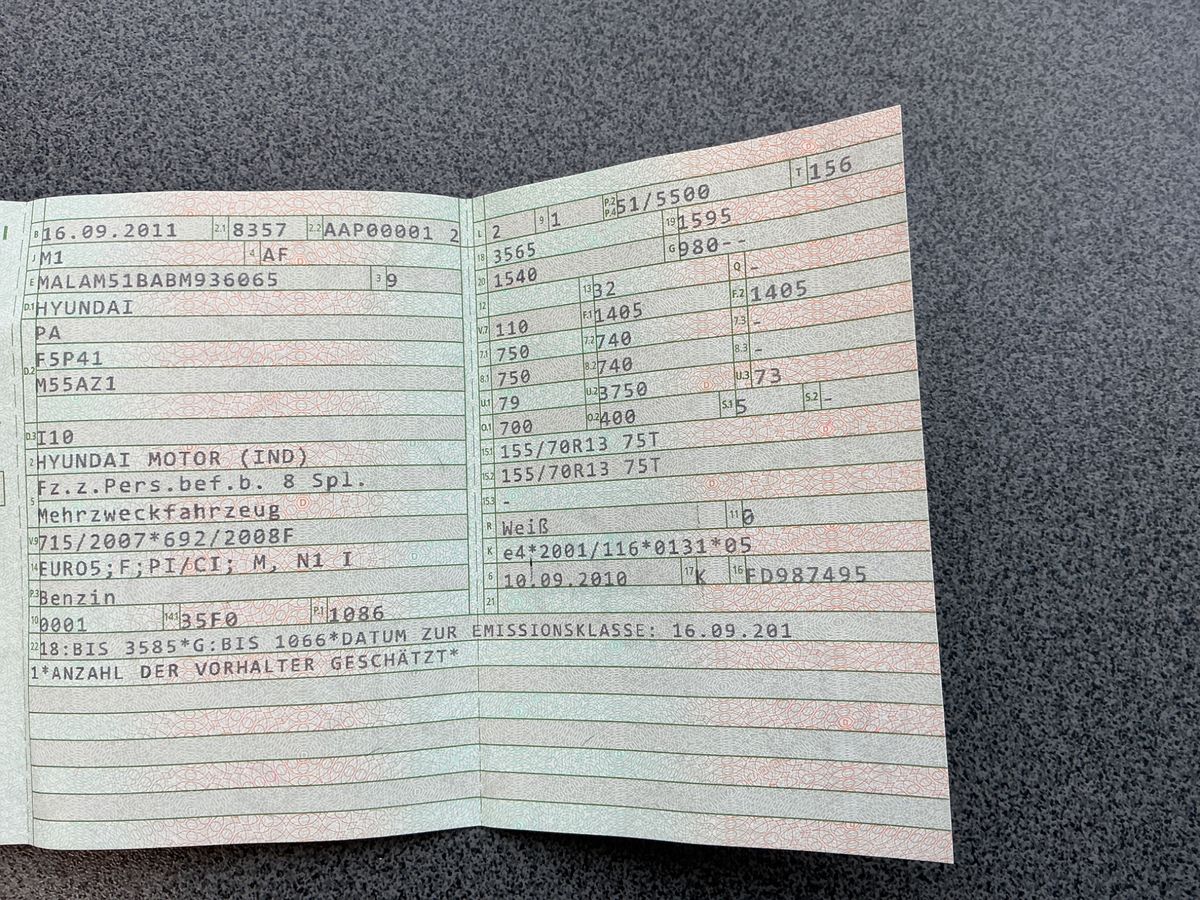 B 16.09.2011 2.1 8357 2.2 AAP00001 2
J M1 4 AF
E MALAM51BABM936065 3 9
D.1 HYUNDAI
PA
D.2 F5P41
M55AZ1
D.3 I10
2 HYUNDAI MOTOR (IND)
5 Fz.z.Pers.bef.b. 8 Spl.
Mehrzweckfahrzeug
V.9 715/2007*692/2008F
14 EURO5;F;PI/CI; M, N1 I
P.3 Benzin
10 0001 14.1 35F0 P.1 1086
L 2 9 1 P.2 P.4 51/5500 T 156
18 3565 19 1595
20 1540 G 980--
12 13 32 Q -
V.7 110 F.1 1405 F.2 1405
7.1 750 7.2 740 7.3 -
8.1 750 8.2 740 8.3 -
U.1 79 U.2 3750 U.3 73
O.1 700 O.2 400 S.1 5 S.2 -
15.1 155/70R13 75T
15.2 155/70R13 75T
15.3 -
R Weiß 11 0
K e4*2001/116*0131*05
6 10.09.2010 17 K 16 FD987495
21
22 18:BIS 3585*G:BIS 1066*DATUM ZUR EMISSIONSKLASSE: 16.09.201
1*ANZAHL DER VORHALTER GESCHÄTZT*